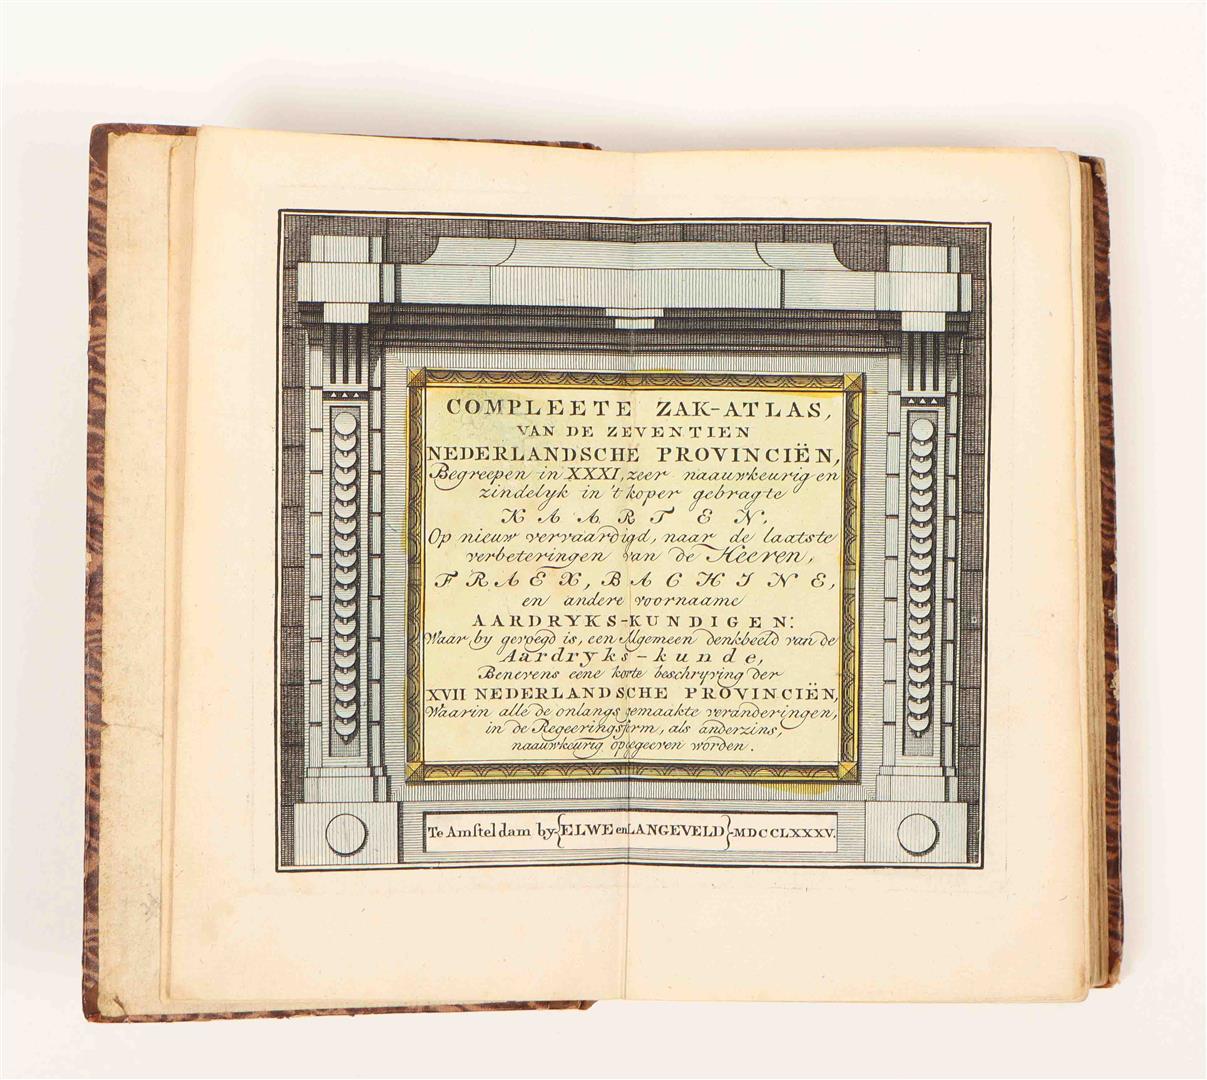 COMPLEETE ZAK-ATLAS,
VAN DE ZEVENTIEN
NEDERLANDSCHE PROVINCIËN,
Begreepen in XXXI, zeer naauwkeurig en
zindelyk in 't koper gebragte
KAARTEN,
Op nieuw vervaardigd, naar de laatste
verbeteringen van de Heeren,
FRAEX, BACHINE,
en andere voornaame
AARDRYKS-KUNDIGEN:
Waar by gevoegd is, een Algemeen denkbeeld van de
Aardryks-kunde,
Benevens eene korte beschryving der
XVII NEDERLANDSCHE PROVINCIËN,
Waarin alle de onlangs gemaakte veranderingen,
in de Regeeringsfirm, als anderzins,
naauwkeurig opgegeeven worden.
Te Amsteldam by {ELWE en LANGEVELD} MDCCLXXXV.